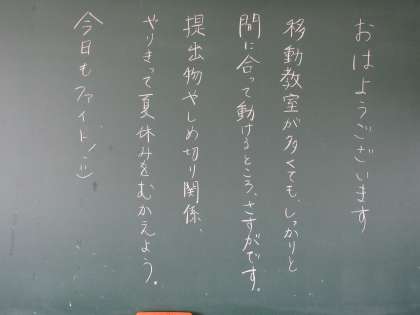 おはようございます
移動教室が多くても、しっかりと
間に合って動けるところ、さすがです。
提出物やしめ切り関係、
やりきって夏休みをむかえよう。
今日もファイト!:)